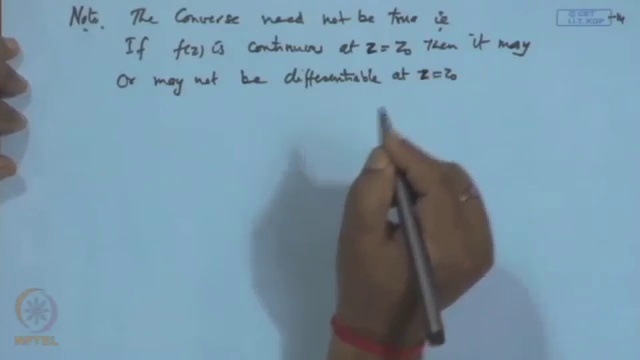 Note. The Converse need not be true ie
If f(z) is continuous at z=z₀ then it may
Or may not be differentiable at z=z₀
© CET
I.I.T. KGP
NPTEL